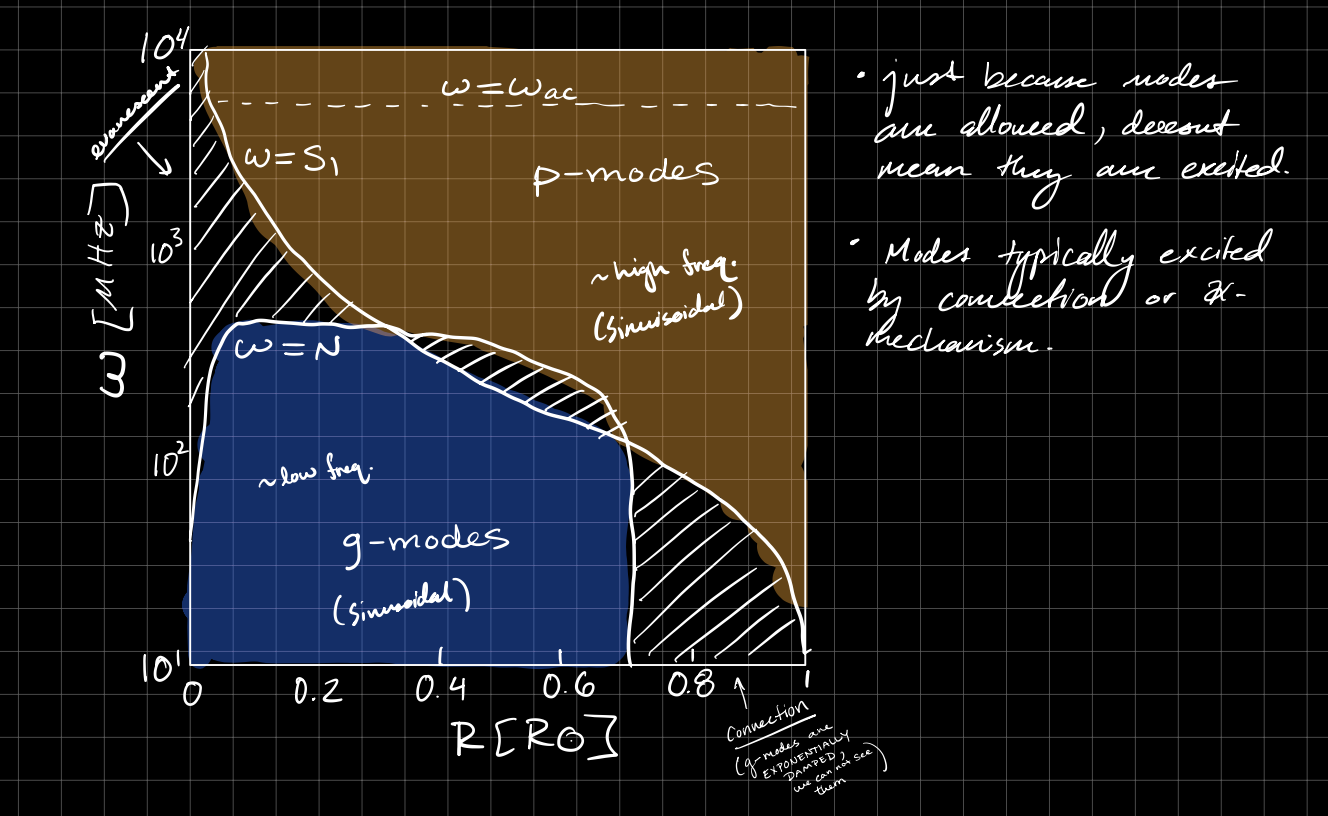 10⁴
evanescent
ω = ω_ac
ω = S₁
p-modes
~high freq.
(sinuisoidal)
ω [μHz]
10³
ω = N
10²
~low freq.
g-modes
(sinusoidal)
10¹
0 0.2 0.4 0.6 0.8 1
R [R⊙]
Convection
(g-modes are
EXPONENTIALLY
DAMPED,
we can not see
them)
• just because modes
are allowed, doesnt
mean they are excited.
• Modes typically excited
by convection or ϰ-
mechanism.